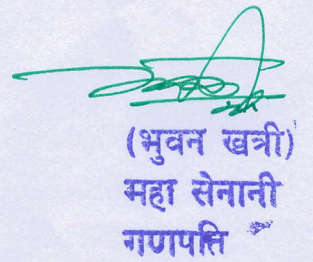 (भुवन खत्री)
महा सेनानी
गणपति